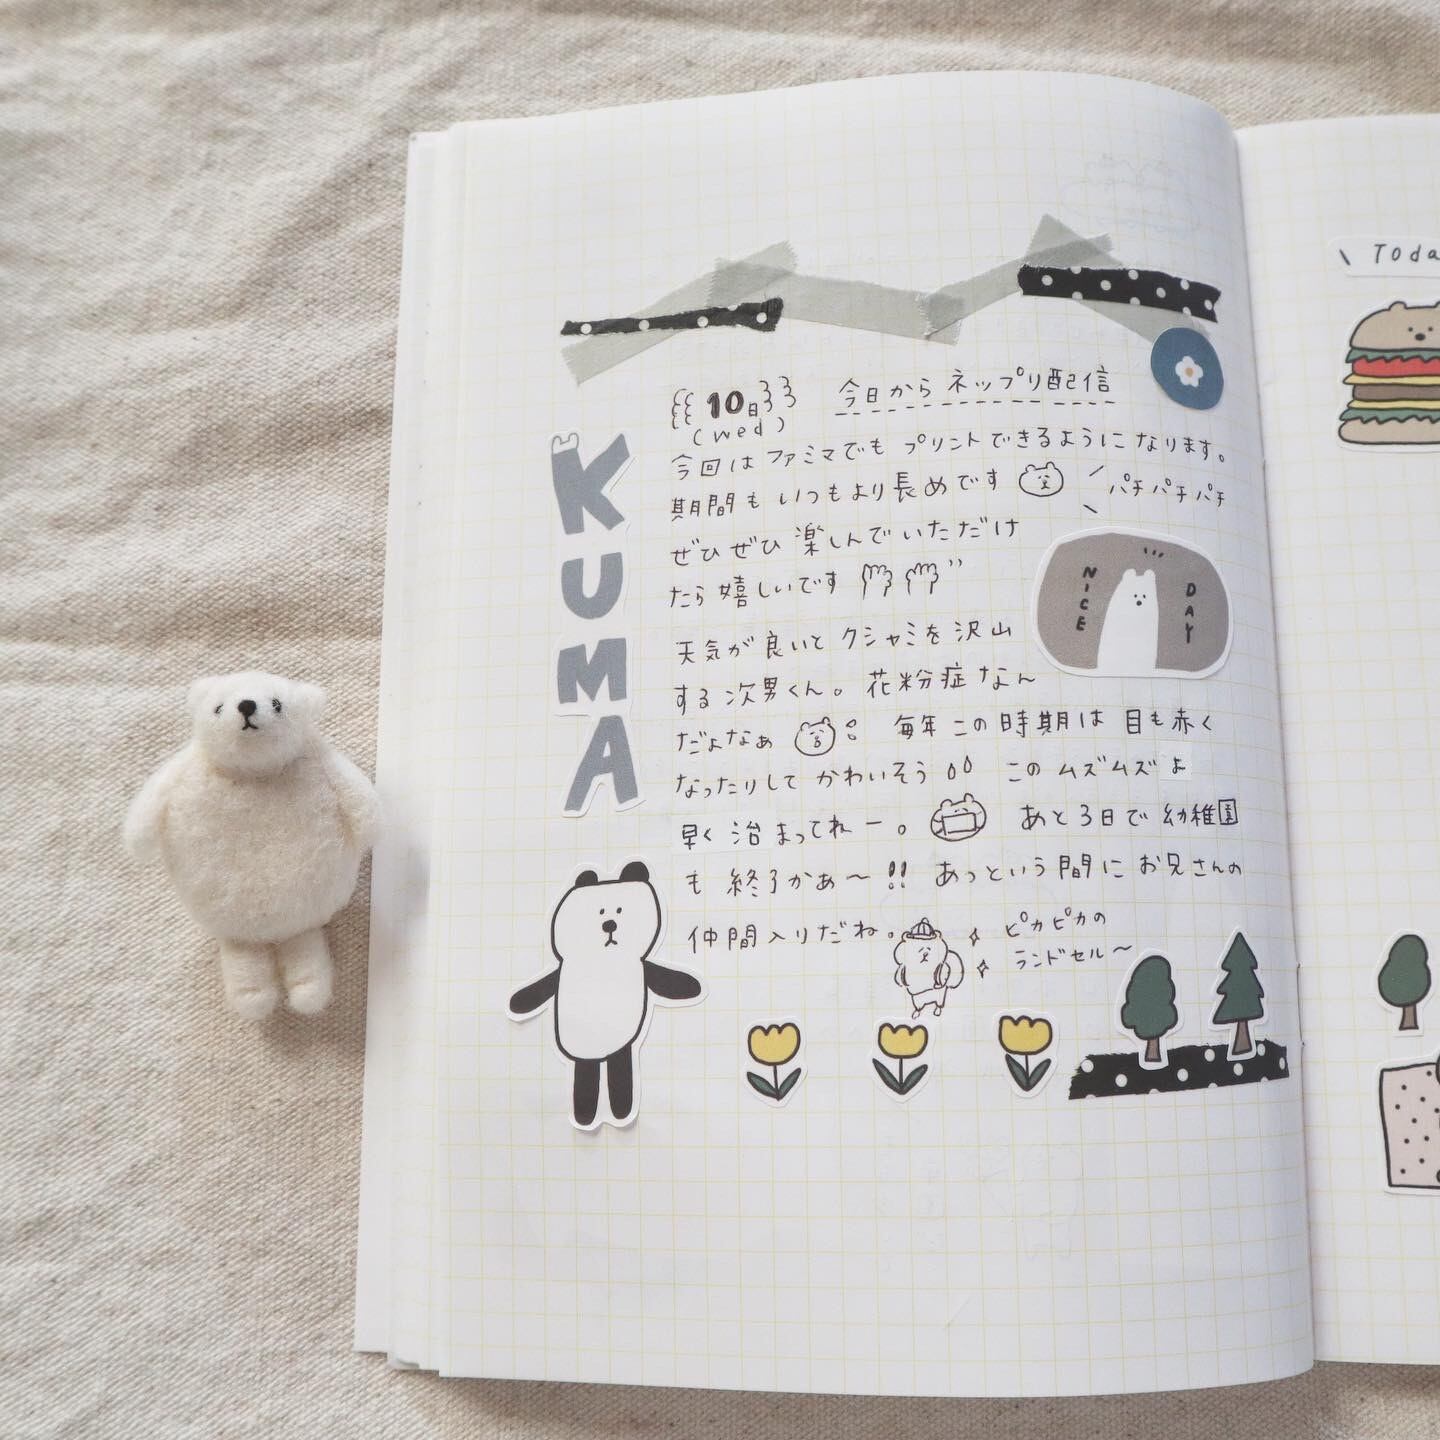 Toda
10日
(wed)
今日から ネップリ配信
今回は ファミマでも プリントできるようになります。
期間も いつもより長めです
パチパチパチ
ぜひぜひ 楽しんでいただけ
たら嬉しいです
NICE
DAY
天気が良いと クシャミを 沢山
する 次男くん。 花粉症なん
だよなぁ 毎年 この時期は 目も赤く
なったりして かわいそう このムズムズよ
早く 治まってねー。 あと3日で 幼稚園
も 終了かぁ〜!! あっという間に お兄さんの
仲間入りだね。
ピカピカの
ランドセル〜
KUMA